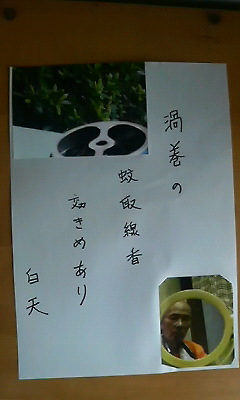 渦巻の
蚊取線香
効きめあり
白天